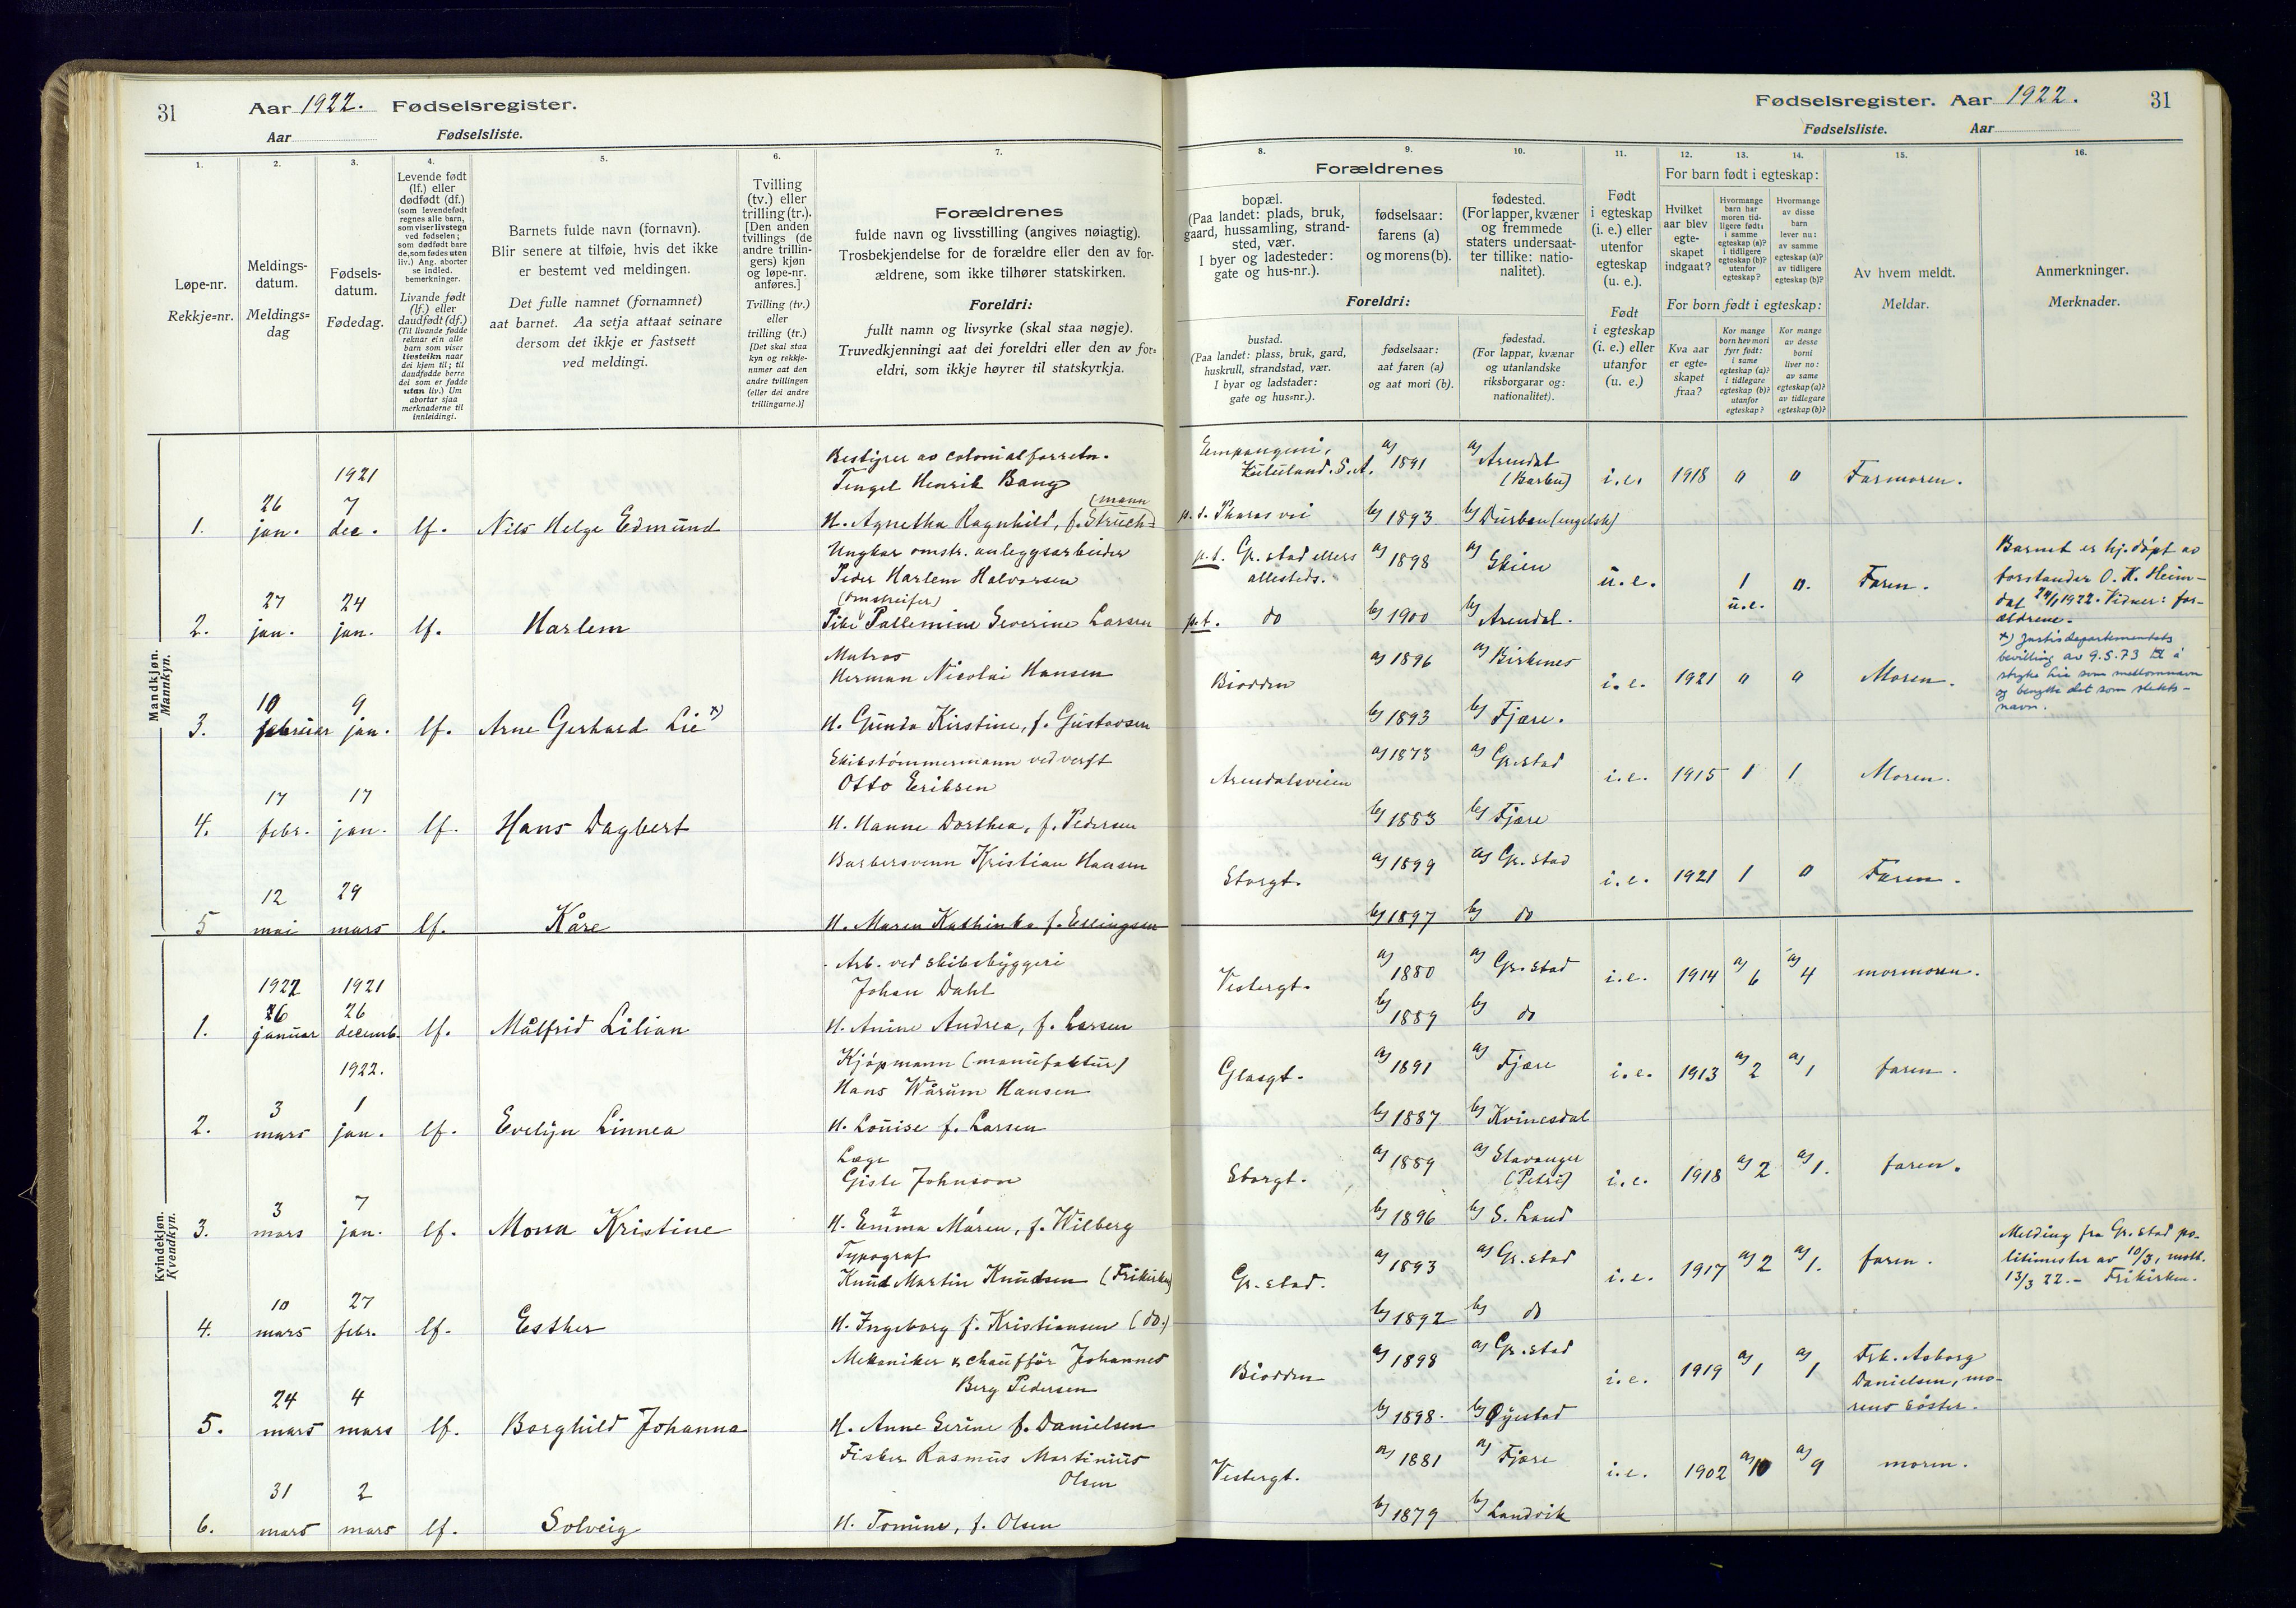 31 Aar 1922. Fødselsregister.
Aar Fødselsliste.
Fødselsregister. Aar 1922. 31
Fødselsliste. Aar
1.
Løpe-nr.
Rekkje=nr.
2.
Meldings-
datum.
Meldings=
dag
3.
Fødsels-
datum.
Fødedag.
4.
Levende født
(lf.) eller
dødfødt (df.)
(som levendefødt
regnes alle barn,
som viser livstegn
ved fødselen;
som dødfødt bare
de, som fødes uten
liv.) Ang. aborter
se indled.
bemerkninger.
Livande født
(lf.) eller
daudfødt (df.)
(Til livande fødde
reknar ein alle
barn som viser
livsteikn naar
dei kjem til; til
daudfødde berre
dei som er fødde
utan liv.) Um
abortar sjaa
merknaderne til
innleidingi.
5.
Barnets fulde navn (fornavn).
Blir senere at tilføie, hvis det ikke
er bestemt ved meldingen.
Det fulle namnet (fornamnet)
aat barnet. Aa setja attaat seinare
dersom det ikkje er fastsett
ved meldingi.
6.
Tvilling
(tv.) eller
trilling (tr.).
[Den anden
tvillings (de
andre trillin-
gers) kjøn
og løpe-nr.
anføres.]
Tvilling (tv.)
eller
trilling (tr.)
[Det skal staa
kyn og rekkje-
numer aat den
andre tvillingen
(eller dei andre
trillingarne.)]
7.
Forældrenes
fulde navn og livsstilling (angives nøiagtig).
Trosbekjendelse for de forældre eller den av for-
ældrene, som ikke tilhører statskirken.
Foreldri:
fullt namn og livsyrke (skal staa nøgje).
Truvedkjenningi aat dei foreldri eller den av for=
eldri, som ikkje høyrer til statskyrkja.
8. 9. 10.
Forældrenes
bopæl.
(Paa landet: plads, bruk,
gaard, hussamling, strand-
sted, vær.
I byer og ladesteder:
gate og hus-nr.).
fødselsaar:
farens (a)
og morens (b).
fødested.
(For lapper, kvæner
og fremmede
staters undersaat-
ter tillike: natio-
nalitet).
Foreldri:
bustad.
(Paa landet: plass, bruk, gard,
huskrull, strandstad, vær.
I byar og ladstader:
gate og hus=nr.).
fødselsaar:
aat faren (a)
og aat mori (b).
fødestad.
(For lappar, kvænar
og utanlandske
riksborgarar og:
nationalitet).
11.
Født
i egteskap
(i. e.) eller
utenfor
egteskap
(u. e.).
Født
i egteskap
(i. e.) eller
utanfor
(u. e.)
12. 13. 14.
For barn født i egteskap:
Hvilket
aar blev
egte-
skapet
indgaat?
Hvormange
barn har
moren tid-
ligere født:
i samme
egteskap (a)?
i tidligere
egteskap (b)?
utenfor
egteskap?
Hvormange
av disse
barn
lever nu:
av samme
egteskap (a)?
av tidligere
egteskap (b)?
For born født i egteskap:
Kva aar
er egte-
skapet
fraa?
Kor mange
born hev mori
fyrr født:
i same
egteskap (a)?
i tidlegare
egteskap (b)?
utanfor
egteskap?
Kor mange
av desse
borni
liver no:
av same
egteskap (a)?
av tidlegare
egteskap (b)?
15.
Av hvem meldt.
Meldar.
16.
Anmerkninger.
Merknader.
Mandkjøn.
Mannkyn.
1921
1. 26 jan. 7 dec. lf. Nils Helge Edmund
Bestyrer av colonialforretn.
Tengel Henrik Bang
H. Agnetha Ragnhild, f. Struck=
(mann
Empangeni,
Zululand. S.A.
p.t. Pharos vei
a) 1891
b) 1893
a) Arendal
(Barbu)
b) Durban (engelsk)
i.e. 1918 0 0 Farmoren.
2. 27 jan. 24 jan. lf. Harlem
Ungkar omstr. anleggsarbeider
Peder Harlem Halvorsen
(omstreifer)
Pike Pallemine Severine Larsen
p.t. Gr.stad ellers
allesteds.
p.t. do
a) 1898
b) 1900
a) Skien
b) Arendal.
u.e. 1 0. Faren.
u.e.
Barnet er hj.døpt av
forstander O. K. Heim-
dal 24/1 1922. Vidner: for-
ældrene.
3. 10 februar 9 jan. lf. Arne Gerhard Lie x)
Matros
Herman Nicolai Hansen
H. Gunda Kirstine, f. Gustavsen
Biodden
a) 1896
b) 1893
a) Birkenes
b) Fjære.
i.e. 1921 0 0 Moren.
x) Justisdepartementets
bevilling av 9.5.73 til å
stryke Lie som mellomnavn
og benytte det som slekts-
navn.
4. 17 febr. 17 jan. lf. Hans Dagbert
Skibstømmermann ved verft
Otto Eriksen
H. Hanne Dorthea, f. Pedersen
Arendalsveien
a) 1873
b) 1883
a) Gr.stad
b) Fjære
i.e. 1915 1 1 Moren.
5 12 mai 29 mars lf. Kåre
Barbersvenn Kristian Hansen
H. Maren Kathinka f. Ellingsen
Storgt.
a) 1899
b) 1897
a) Gr.stad
b) do
i.e. 1921 1 0 Faren.
Kvindekjøn.
Kvendkyn.
1922 1921
1. 26 januar 26 decemb. lf. Målfrid Lilian
Arb. ved skibsbyggeri
Johan Dahl
H. Anine Andrea, f. Larsen
Vestergt.
a) 1880
b) 1889
a) Gr.stad
b) do
i.e. 1914 a) 6 a) 4 mormoren.
1922.
2. 3 mars 1 jan. lf. Evelyn Linnea
Kjøpmann (manufaktur)
Hans Wårum Hansen
H. Louise f. Larsen
Glasgt.
a) 1891
b) 1887
a) Fjære
b) Kvinesdal
i.e. 1913 a) 2 a) 1 faren.
3. 3 mars 7 jan. lf. Mona Kristine
Læge
Gisle Johnson
H. Emma Maren, f. Wilberg
2 1
Storgt.
a) 1889
b) 1896
a) Stavanger
(Petri)
b) S. Land
i.e. 1918 a) 2 a) 1. faren.
4. 10 mars 27 febr. lf. Esther
Typograf
Knud Martin Knudsen (Frikirken)
H. Ingeborg f. Kristiansen (do.)
Gr.stad.
a) 1893
b) 1892
a) Gr.stad
b) do
i.e. 1917 a) 2 a) 1. faren.
Melding fra Gr.stad po-
litimester av 10/3, mott.
13/3 22. – Frikirken.
5. 24 mars 4 mars lf. Borghild Johanna
Mekaniker & chauffør Johannes
Berg Pedersen
H. Anne Serine f. Danielsen
Biodden
a) 1898
b) 1898.
a) Gr.stad
b) Øyestad
i.e. 1919 a) 1 a) 1
Frk. Aaborg
Danielsen, mo-
rens søster.
6. 31 mars 2 mars lf. Solveig
Fisker Rasmus Martinius
Olsen
H. Tomine, f. Olsen
Vestergt.
a) 1881
b) 1879
a) Fjære
b) Landvik
i.e. 1902 a) 10 a) 9 moren.